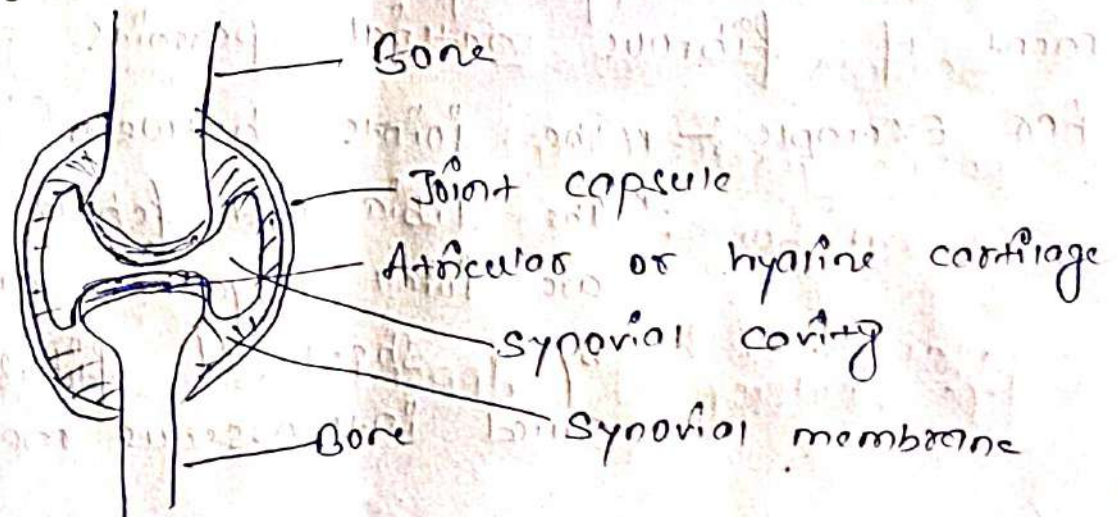 Bone
Joint capsule
Atricular or hyaline cartilage
Synovial cavity
Synovial membrane
Bone